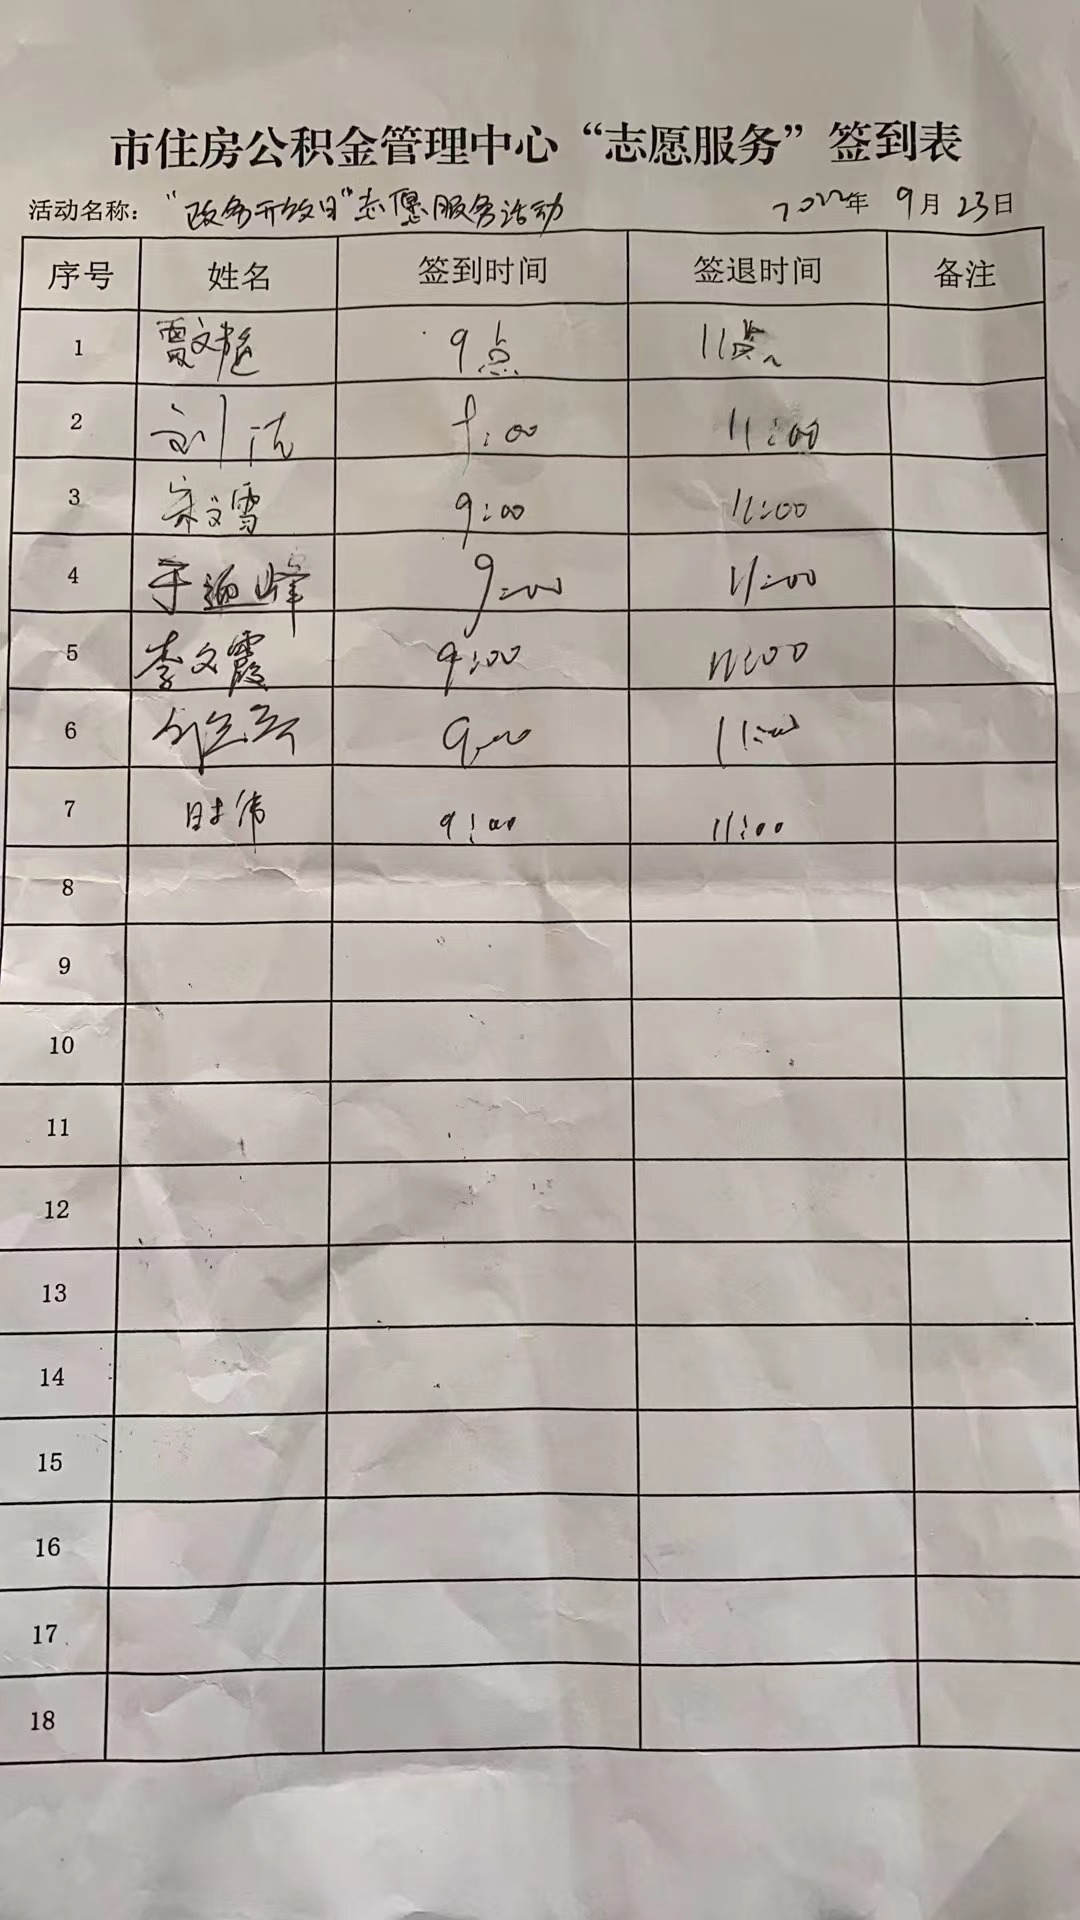 市住房公积金管理中心“志愿服务”签到表
活动名称：“政务开放日”志愿服务活动 2022年 9月 23日
序号 姓名 签到时间 签退时间 备注
1 贾文 9点 11点
2 刘 9:00 11:00
3 宋文雪 9:00 11:00
4 于 峰 9:00 11:00
5 李文霞 9:00 11:00
6 9:00 11:00
7 时伟 9:00 11:00
8
9
10
11
12
13
14
15
16
17
18